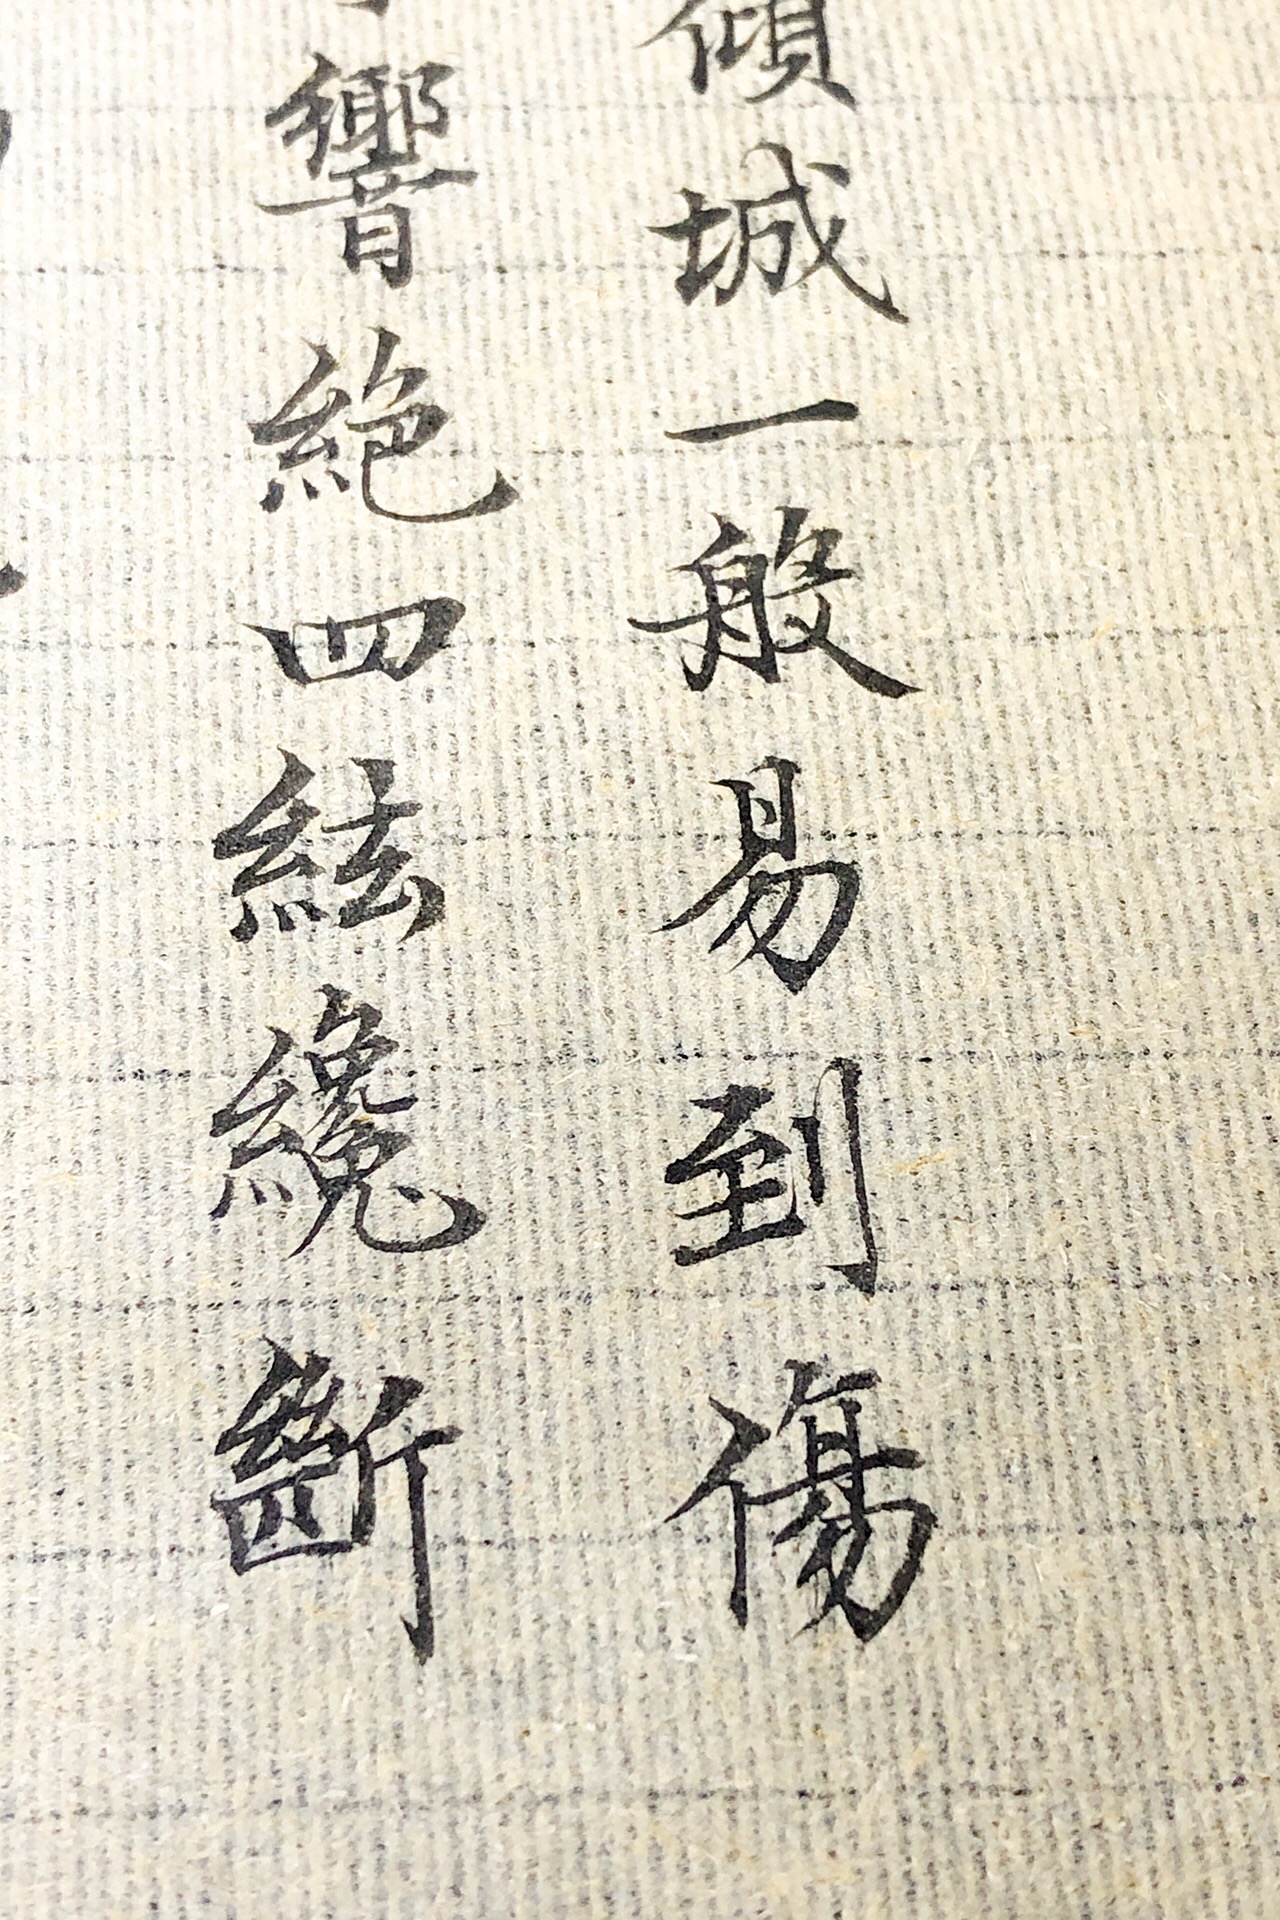 傾城一般易到傷
響絕四絃纔斷